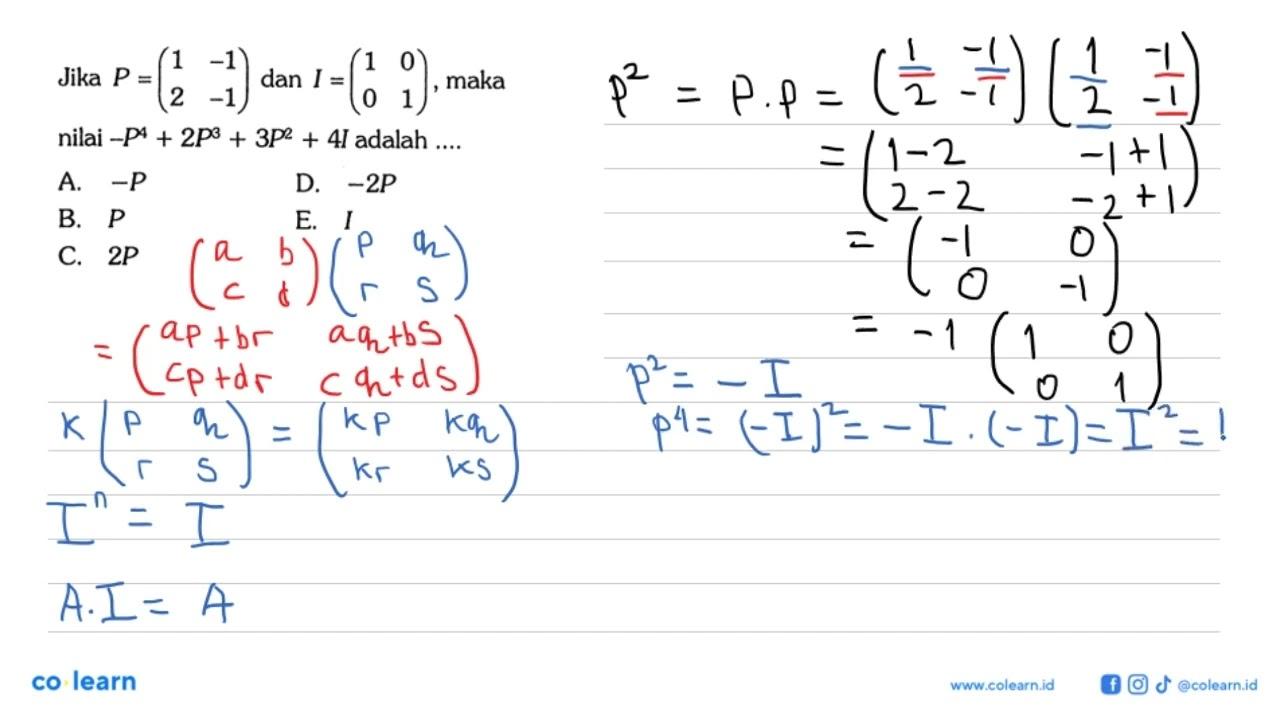 Jika P = (1 -1
2 -1) dan I = (1 0
0 1), maka
nilai –P⁴ + 2P³ + 3P² + 4I adalah ....
A. –P
B. P
C. 2P
D. –2P
E. I
(a b
c d) (p q
r s)
= (ap+br aq+bs
cp+dr cq+ds)
K (p q
r s) = (kp kq
kr ks)
Iⁿ = I
A.I = A
P² = P.P = (1 -1
2 -1) (1 -1
2 -1)
= (1-2 -1+1
2-2 -2+1)
= (-1 0
0 -1)
= -1 (1 0
0 1)
P² = -I
P⁴ = (-I)² = -I.(-I) = I² =
co learn
www.colearn.id
@colearn.id